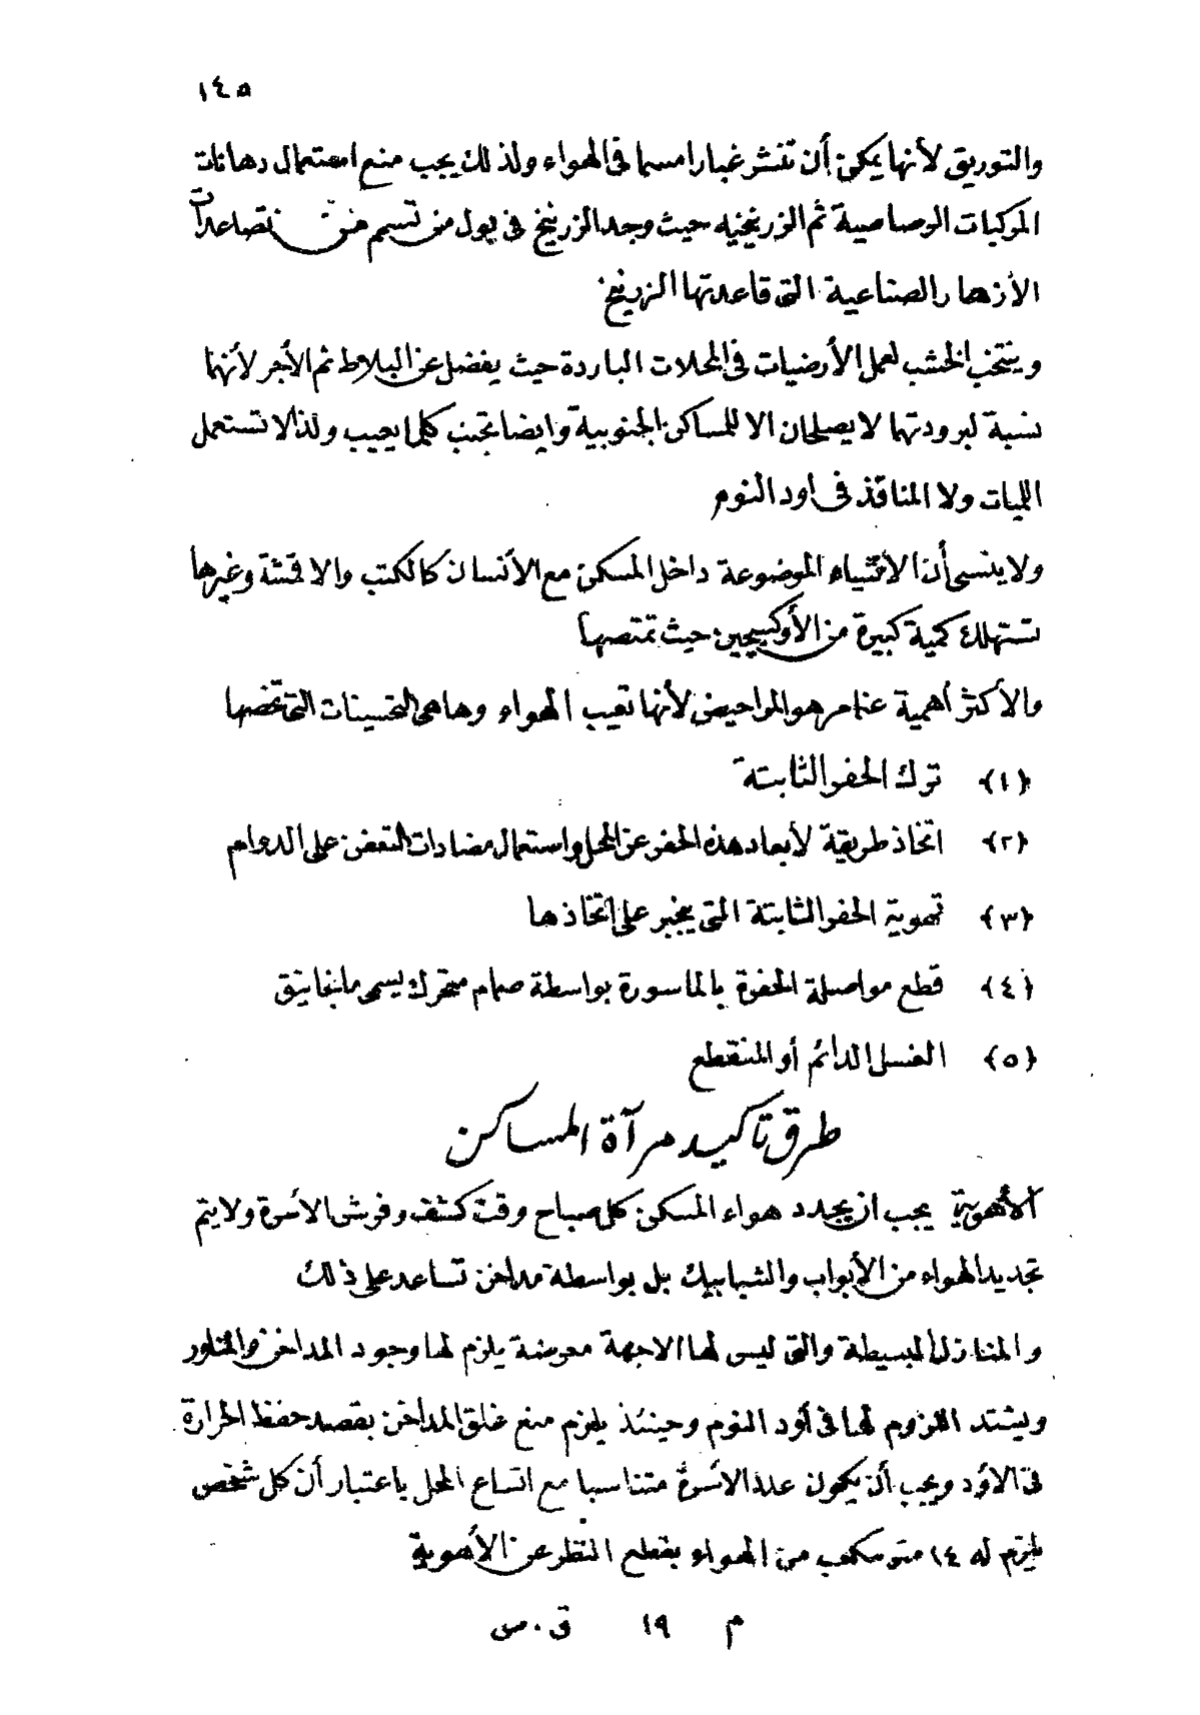 ١٤٥
والتوريق لأنها يمكن أن تنشر غبارا مسما فى الهواء ولذلك يجب منع استعمال دهانات
المركبات الرصاصية ثم الزرنيخيه حيث وجد الزرنيخ فى بول من تسمم من تصاعدات
الأزهار الصناعية التى قاعدتها الزرنيخ
وينتخب الخشب لعمل الأرضيات فى المحلات الباردة حيث يفضل عن البلاط ثم الأجر لأنهما
نسبة لبرودتهما لا يصلحان الا للمساكن الجنوبية وايضا تجنب كلما يعيب ولذا لا تستعمل
اللبات ولا المناقذ فى اود النوم
ولا ينسى أن الاشياء الموضوعة داخل المسكن مع الأنسان كالكتب والاقمشة وغيرها
تستهلك كمية كبيرة من الأوكسيجين حيث تمتصها
والأكثر أهمية عما مر هو المراحيض لأنها تعيب الهواء وها هى التحسينات التى تخصها
(١) ترك الحفر الثابتة
(٢) اتخاذ طريقة لأبعاد هذه الحفر عن المحل واستعمال مضادات التعفن على الدوام
(٣) تهوية الحفر الثابتة التى يجبر على اتخاذها
(٤) قطع مواصلة الحفرة بالماسورة بواسطة صمام متحرك يسمى
(٥) الغسل الدائم أو المنقطع
طرق تاكيد مرآة المساكن
الأهوية يجب ان يجدد هواء المسكن كل صباح وقت كشف وفرش الاسرة ولا يتم
تجديد الهواء من الأبواب والشبابيك بل بواسطة مداخن تساعد على ذلك
والمنازل البسيطة والتى ليس لها الا جهة معرضة يلزم لها وجود المداخن والمناور
ويشتد اللزوم لها فى أود النوم وحينئذ يلزم منع غلق المداخن بقصد حفظ الحرارة
فى الاود ويجب أن يكون عدد الاسرة متناسبا مع اتساع المحل باعتبار أن كل شخص
يلزم له ١٤ متر مكعب من الهواء بقطع النظر عن الأهوية
م ١٩ ق . س